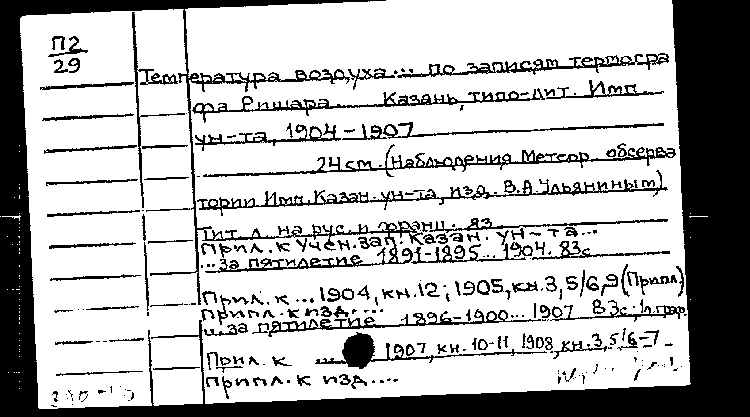 П2
29
Температура воздуха... по записям термогра
фа Ришара. Казань, типо-лит. Имп.
ун-та, 1904-1907
24см. (Наблюдения Метеор. обсерва
тории Имп. Казан. ун-та, изд. В.А.Ульяниным).
Тит. л. на рус. и франц. яз
Прил. к Учен. зап. Казан. ун-та...
...за пятилетие 1891-1895.. 1904. 83с
Прил. к ... 1904, кн.12; 1905, кн.3, 5/6, 9 (Припл)
Припл. к изд....
за пятилетие 1896-1900... 1907 83с., 1л. граф
Прил. к ... 1907, кн. 10-11, 1908, кн. 3, 5/6-7
Припл. к изд....